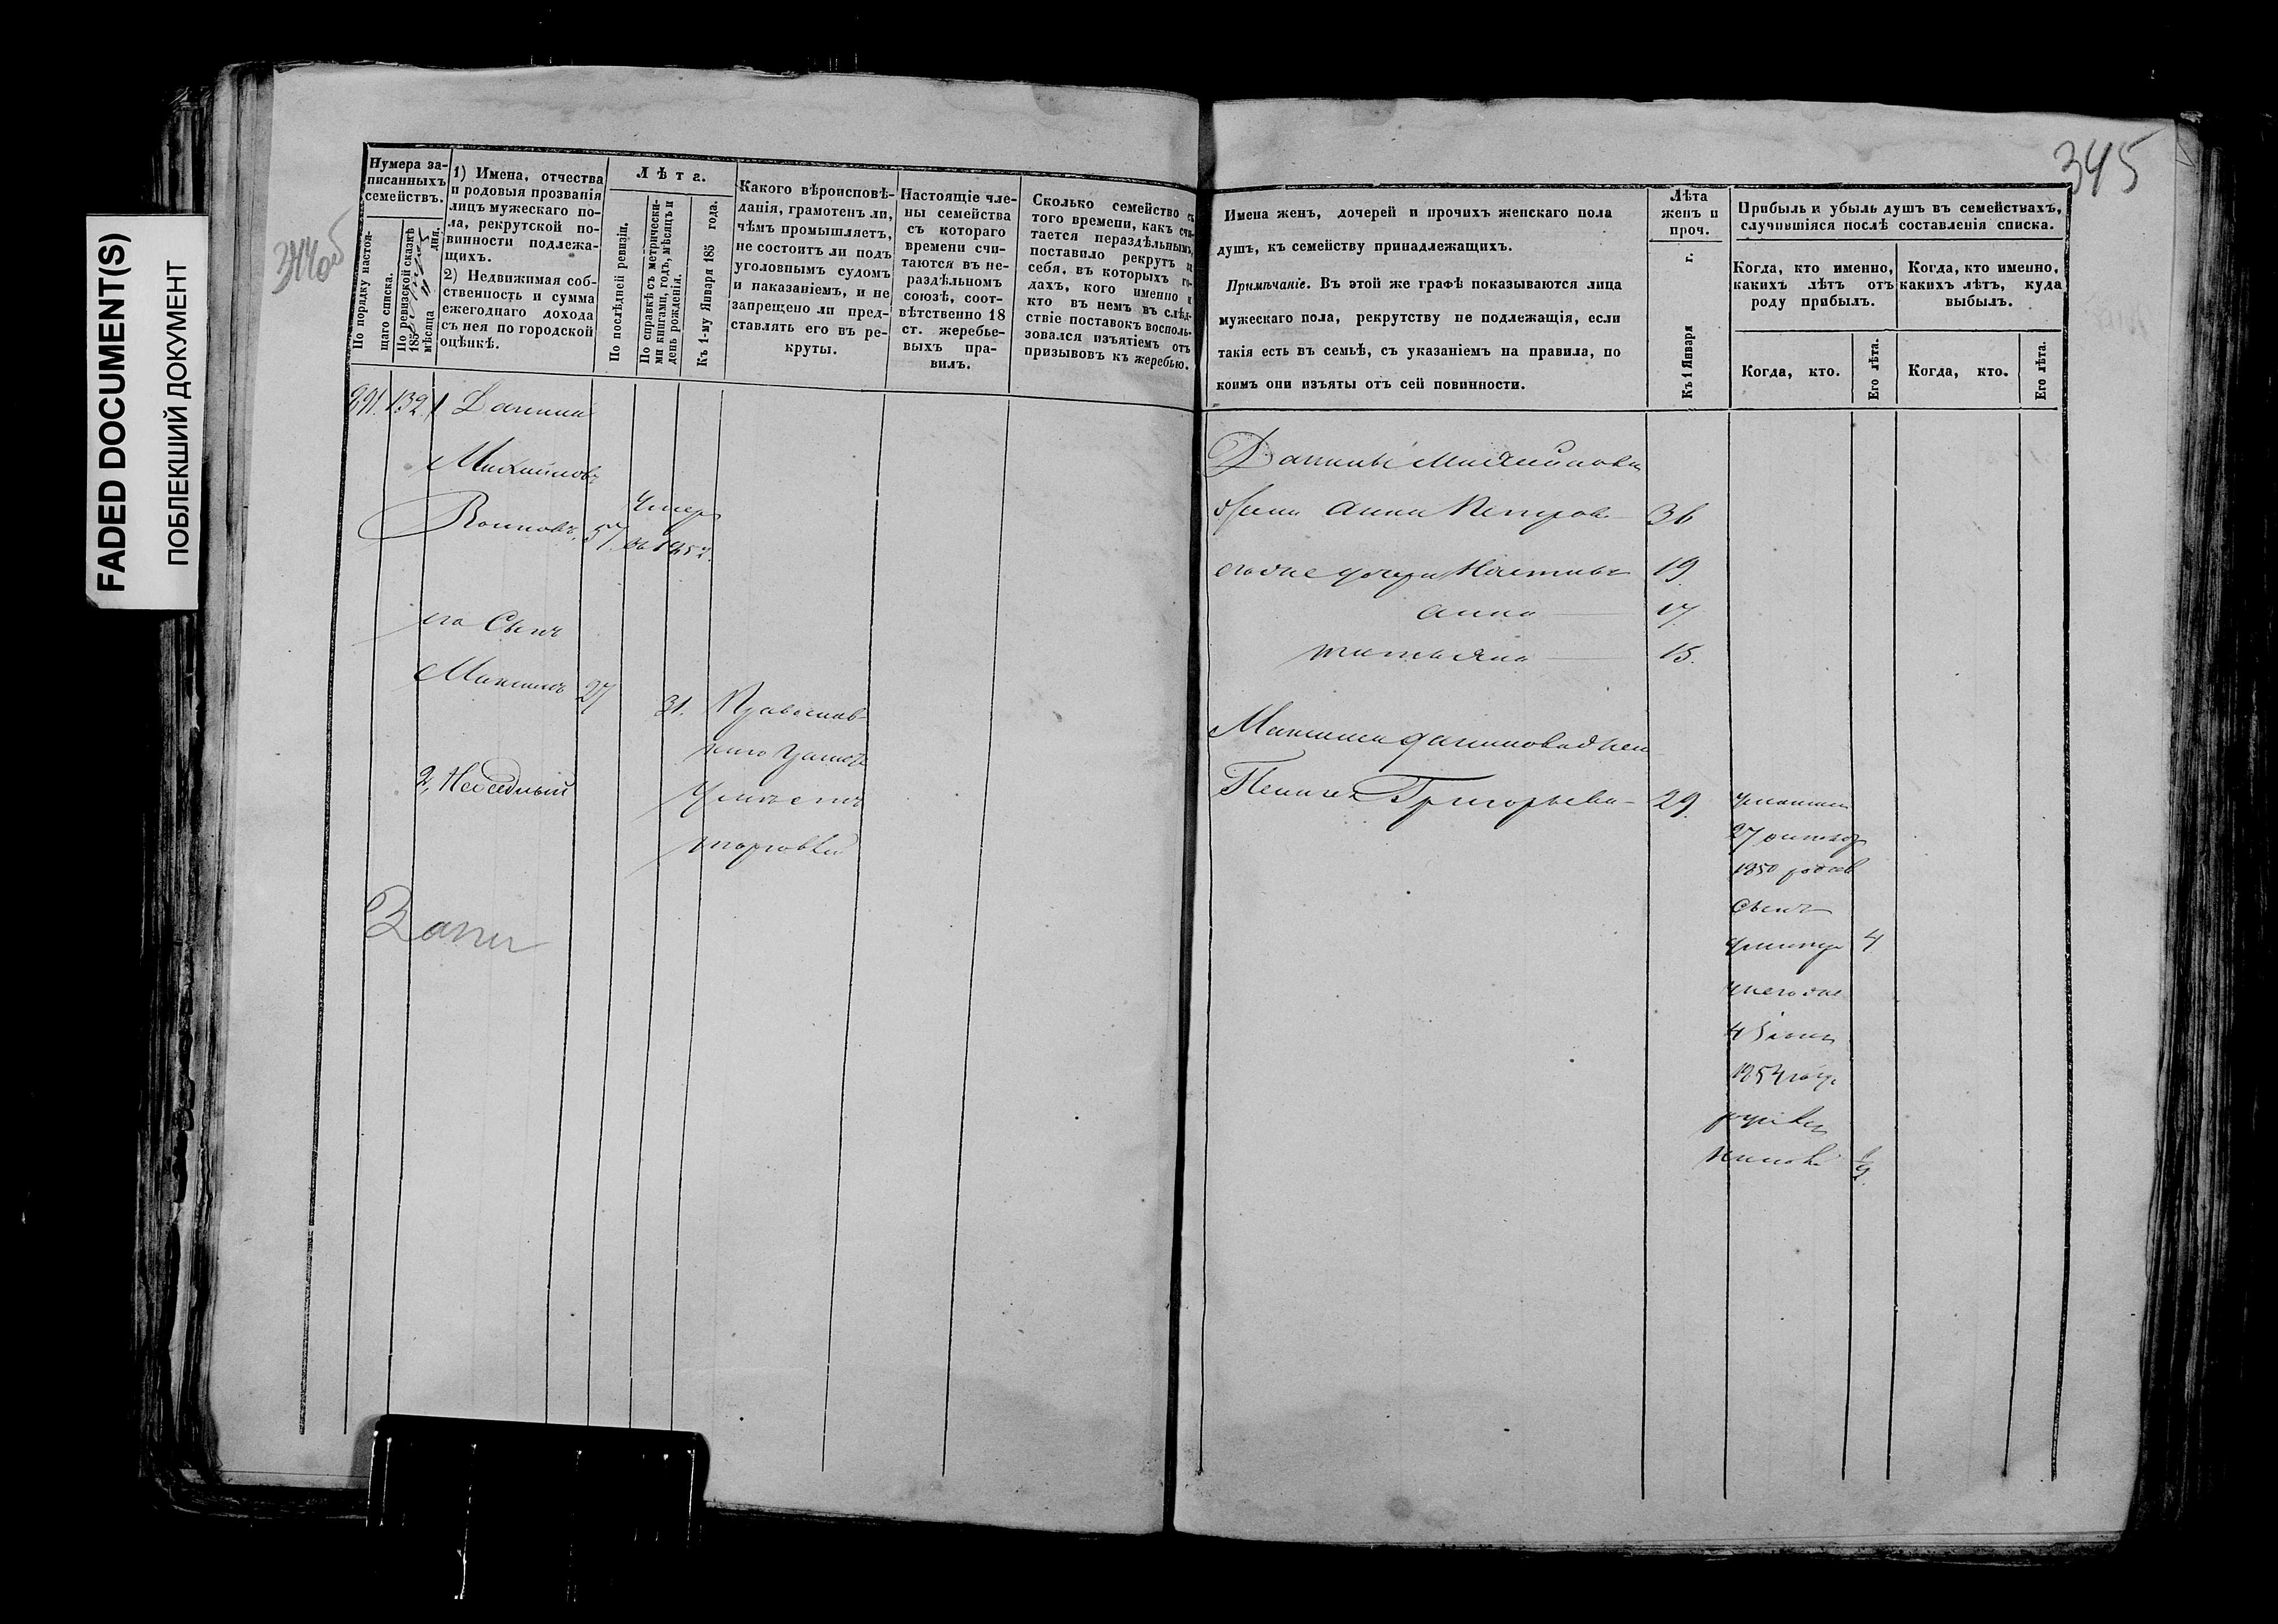 FADED DOCUMENT(S)
ПОБЛЕКШИЙ ДОКУМЕНТ
345
344об
Нумера за-
писанныхъ
семействъ.
По порядку настоя-
щаго списка.
По ревизской сказкѣ
185
мѣсяца дня.
1) Имена, отчества
и родовыя прозванія
лицъ мужескаго по-
ла, рекрутской по-
винности подлежа-
щихъ.
2) Недвижимая соб-
ственность и сумма
ежегоднаго дохода
съ нея по городской
оцѣнкѣ.
Лѣта.
По послѣдней ревизіи.
По справкѣ съ метрически-
ми книгами, годъ, мѣсяцъ и
день рожденія.
Къ 1-му Января 185 года.
Какого вѣроисповѣ-
данія, грамотенъ ли,
чѣмъ промышляетъ,
не состоитъ ли подъ
уголовнымъ судомъ
и наказаніемъ, и не
запрещено ли пред-
ставлять его въ ре-
круты.
Настоящіе чле-
ны семейства
съ котораго
времени счи-
таются въ не-
раздѣльномъ
союзѣ, соот-
вѣтственно 18
ст. жеребье-
выхъ пра-
вилъ.
Сколько семейство съ
того времени, какъ счи-
тается нераздѣльнымъ,
поставило рекрутъ за
себя, въ которыхъ го-
дахъ, кого именно и
кто въ немъ въ слѣд-
ствіе поставокъ восполь-
зовался изъятіемъ отъ
призывовъ къ жеребью.
Имена женъ, дочерей и прочихъ женскаго пола
душъ, къ семейству принадлежащихъ.
Примѣчаніе. Въ этой же графѣ показываются лица
мужескаго пола, рекрутству не подлежащія, если
такія есть въ семьѣ, съ указаніемъ на правила, по
коимъ они изъяты отъ сей повинности.
Лѣта
женъ и
проч.
Къ 1 Января г.
Прибыль и убыль душъ въ семействахъ,
случившіяся послѣ составленія списка.
Когда, кто именно,
какихъ лѣтъ отъ
роду прибылъ.
Когда, кто именно,
какихъ лѣтъ, куда
выбылъ.
Когда, кто.
Его лѣта.
Когда, кто.
Его лѣта.
891. 132. 1 Данила
Михайловъ
57. Умер
въ 1852.
его Сынъ
Максимъ 27 31. Православ-
наго
торговлей
Данилы Михайлова
жена Анна Петрова 36
его же дочери Настасья 19.
Анна 17.
Татьяна 15.
Максима Данилова жена
Григорьева 29.
у Максима
27 октяб
1850
Сынъ
Дмитрій 4
у него же
4 Іюня
1854 году